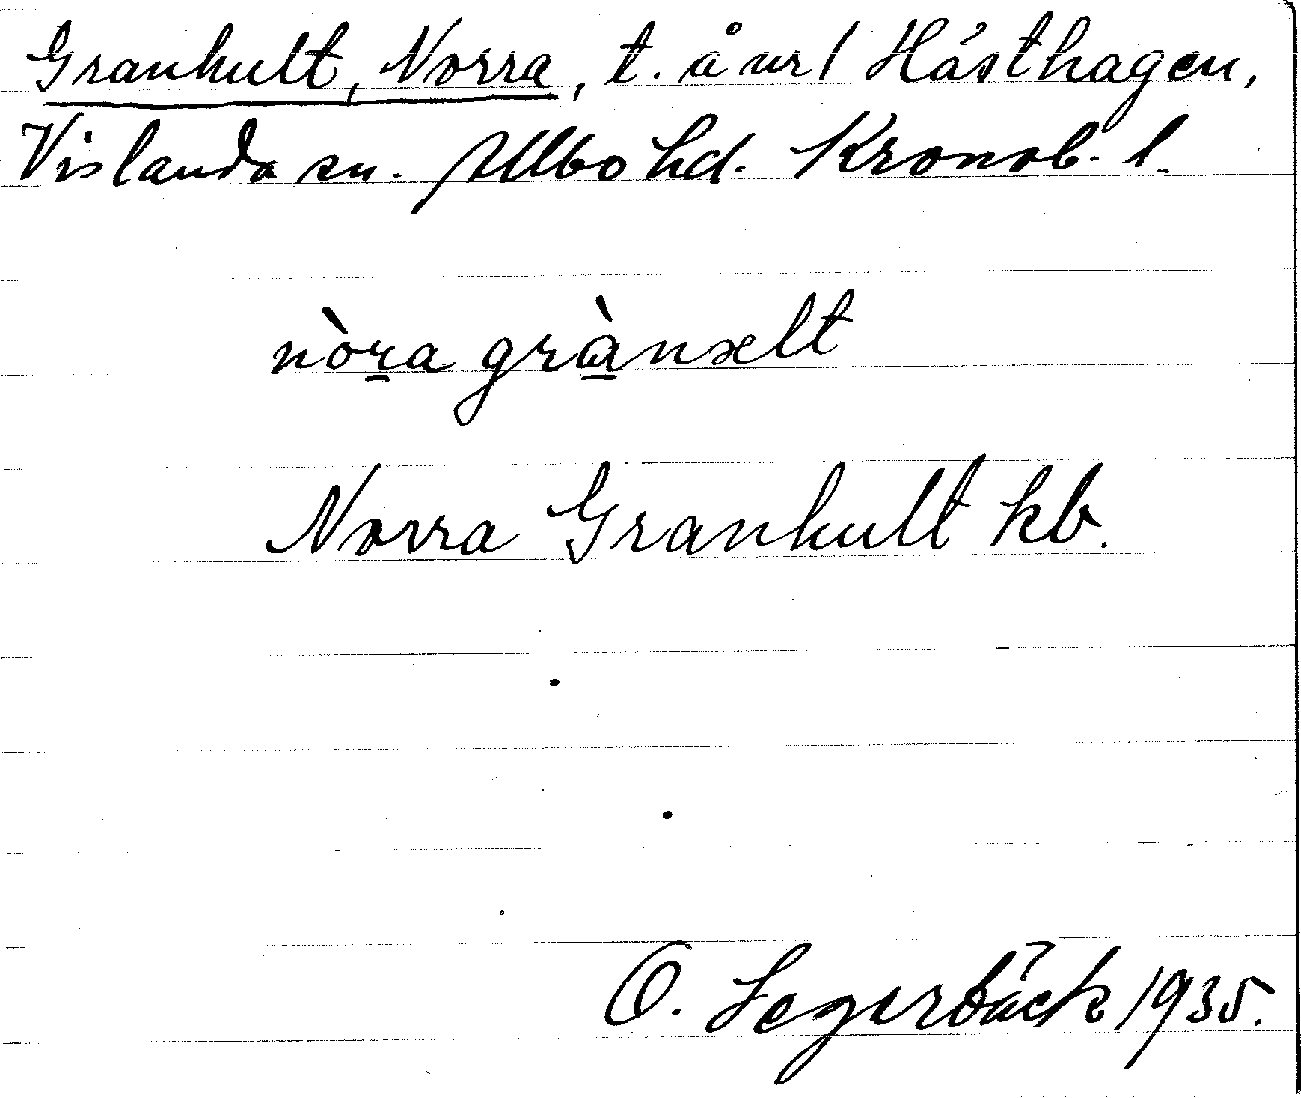 Granhult, Norra, t. å nr 1 Hästhagen,
Vislanda sn. Allbo hd. Kronob. l.
nòra grànxlt
Norra Granhult kb.
O. Segerbäck 1935.